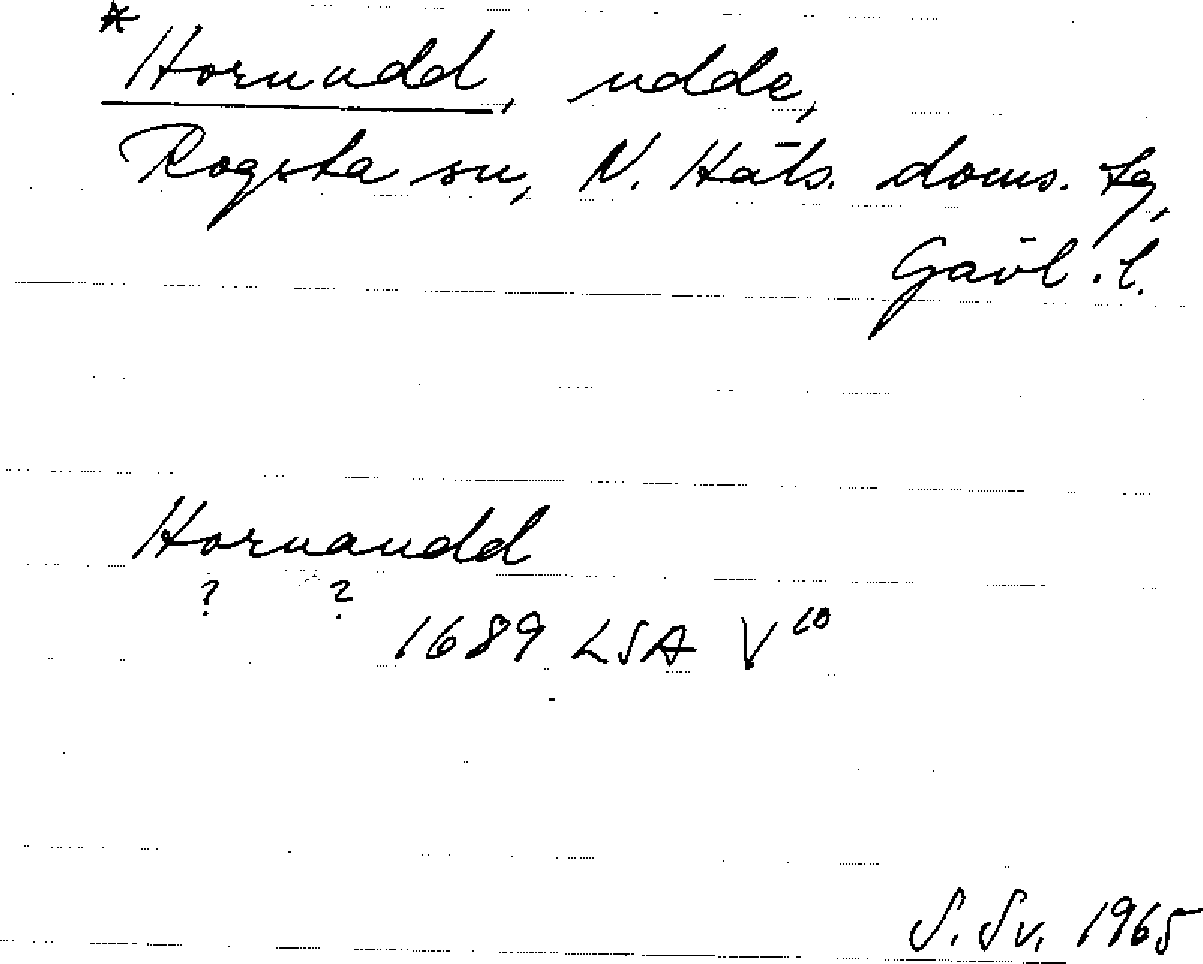 *Hornudd, udde,
Rogsta sn, N. Häls. doms. tg,
Gävl. l.
Hornaudd
? ?
1689 LSA V¹⁰
S. Sv. 1965